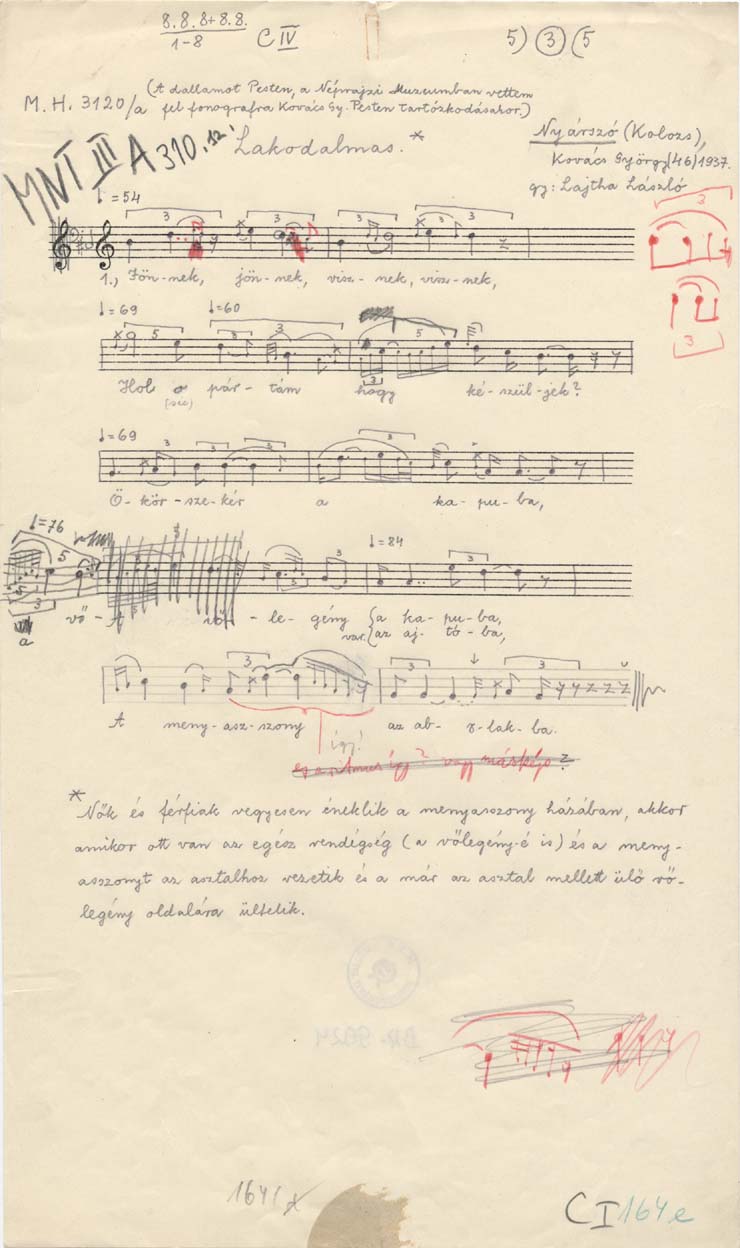 8. 8. 8+8. 8.
1-8
C IV
5) 3 (5
M. H. 3120/a
(A dallamot Pesten, a Néprajzi Muzeumban vettem
fel fonografra Kovács Gy. Pesten tartózkodásakor.)
MNT III A 310.
Lakodalmas. *
Nyárszó (Kolozs),
Kovács György (46) 1937.
gy: Lajtha László
♩ = 54
3 3 3 3
3
1., Jön-nek, jön-nek, visz-nek, visz-nek,
♩ = 69 ♩ = 60
5 3 3 5
3
3
Hol o pár-tám hogy ké-szül-jek?
(sic)
♩ = 69
3 3 3 3
Ö-kör-sze-kér a ka-pu-ba,
♩ = 76
5 ♩ = 84
3 3 3
3
a vő-A vő-le-gény {a ka-pu-ba,
var. {az aj-tó-ba,
3 3 3
A meny-asz-szony az ab-lak-ba.
így!
és a ritmus így? vagy másképp?
* Nők és férfiak vegyesen éneklik a menyasszony házában, akkor
amikor ott van az egész vendégség (a vőlegény-é is) és a meny-
asszonyt az asztalhoz vezetik és a már az asztal mellett ülő vő-
legény oldalára ültetik.
C I 164e